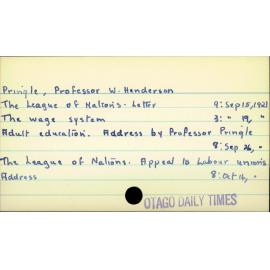 Pringle, Professor W. Henderson
The League of Nations - Letter 9: Sep 15, 1921
The wage system 3: " 19, "
Adult education. Address by Professor Pringle
8: Sep 26, "
The League of Nations. Appeal to Labour unions
Address 8: Oct 14, "
OTAGO DAILY TIMES